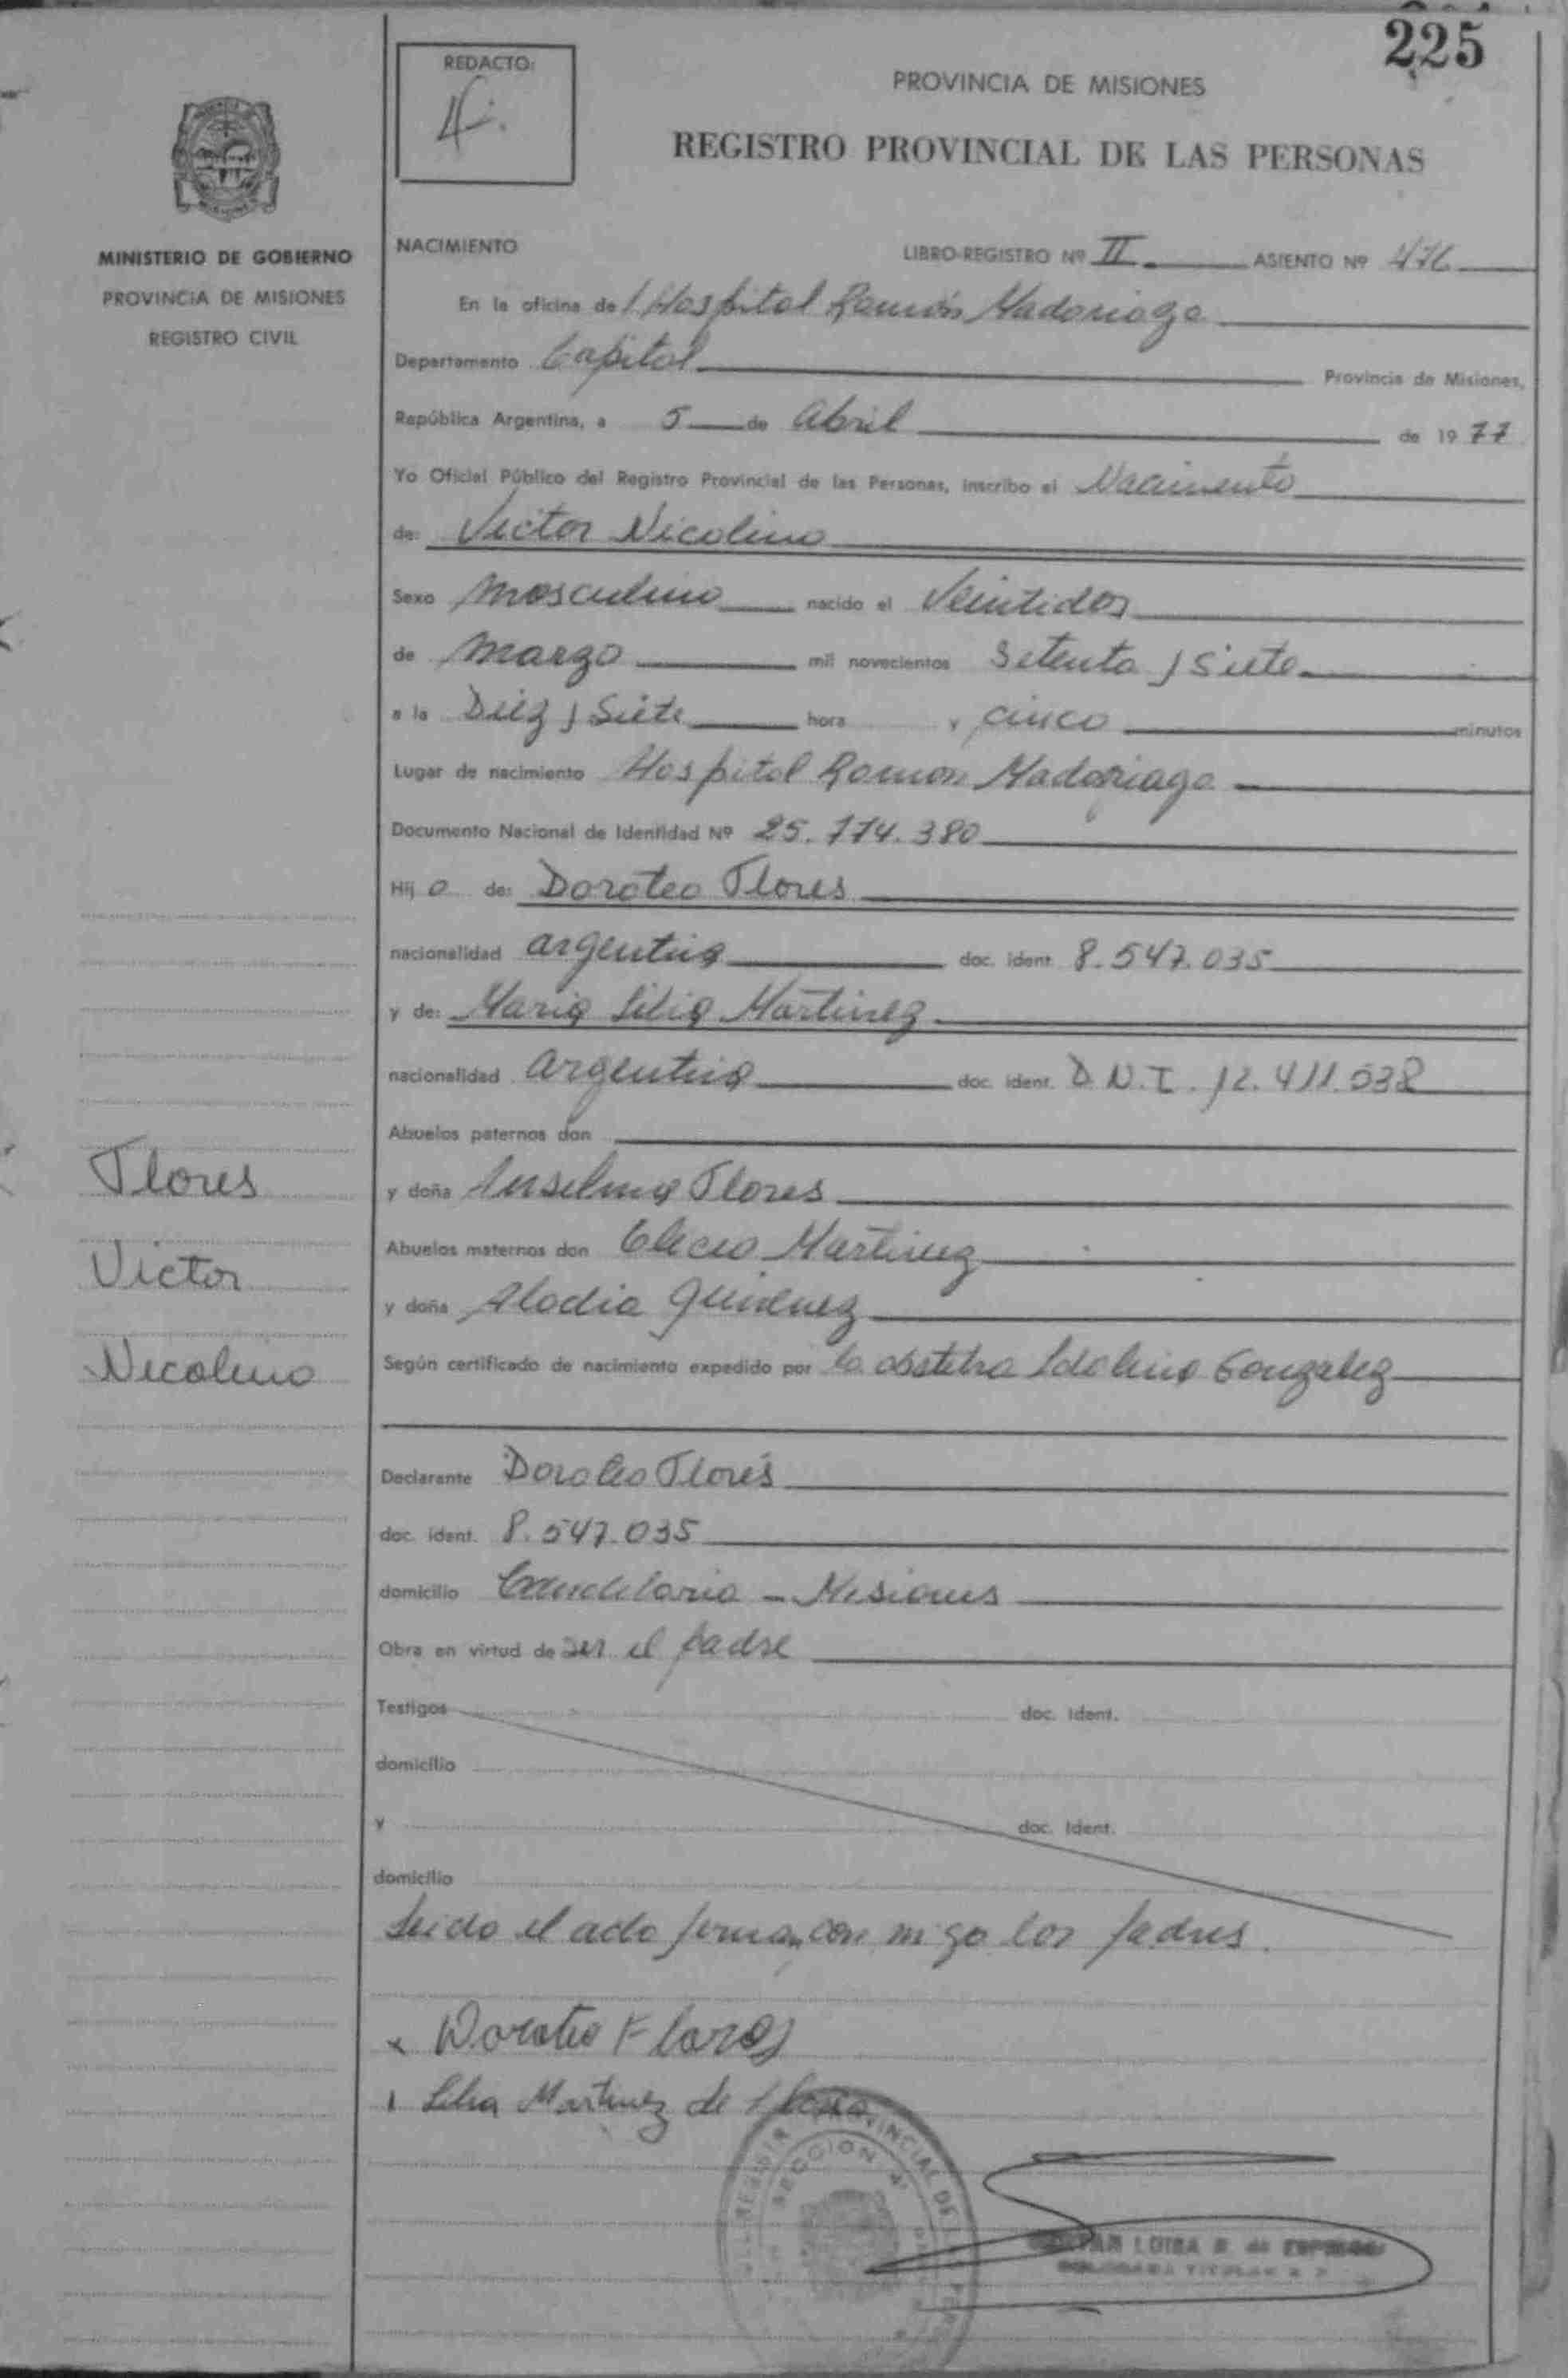 225
REDACTO:
PROVINCIA DE MISIONES
REGISTRO PROVINCIAL DE LAS PERSONAS
MINISTERIO DE GOBIERNO
PROVINCIA DE MISIONES
REGISTRO CIVIL
NACIMIENTO LIBRO-REGISTRO Nº II ASIENTO Nº 476
En la oficina de l Hospital Ramón Madariaga
Departamento Capital Provincia de Misiones,
República Argentina, a 5 de Abril de 1977
Yo Oficial Público del Registro Provincial de las Personas, inscribo el Nacimiento
de: Victor Nicolino
Sexo Masculino nacido el Veintidos
de Marzo mil novecientos Setenta y Siete
a la Diez y Siete hora y cinco minutos
Lugar de nacimiento Hospital Ramon Madariaga
Documento Nacional de Identidad Nº 25.774.380
Hij o de: Doroteo Flores
nacionalidad argentina doc. ident. 8.547.035
y de: Maria Lilia Martinez
nacionalidad argentina doc. ident. D.N.I. 12.411.038
Abuelos paternos don
y doña Anselma Flores
Abuelos maternos don Martinez
y doña Alodia Gimenez
Según certificado de nacimiento expedido por la obstetra Idolina Gonzalez
Declarante Doroteo Flores
doc. ident. 8.547.035
domicilio Candelaria - Misiones
Obra en virtud de ser el padre
Testigos doc. Ident.
domicilio
y doc. Ident.
domicilio
Leido el acta firman con migo los padres.
x Doroteo Flores
Lilia Martinez de Flores
Flores
Victor
Nicolino
PROVINCIAL DE
SECCION 4ª
LUISA
TITULAR